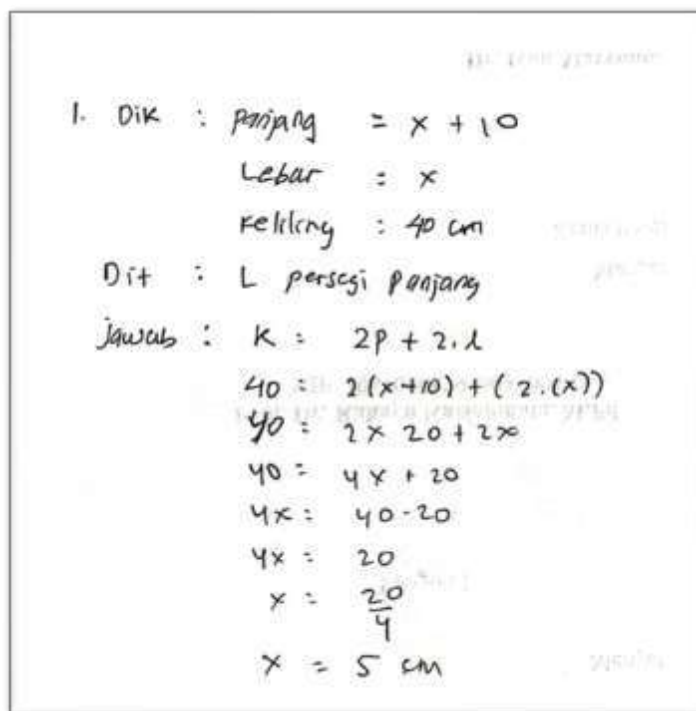 1. Dik : panjang = x + 10
Lebar = x
Keliling : 40 cm
Dit : L persegi panjang
jawab : K = 2p + 2.l
40 = 2(x+10) + (2.(x))
40 = 2x 20 + 2x
40 = 4x + 20
4x = 40-20
4x = 20
x = 20/4
x = 5 cm